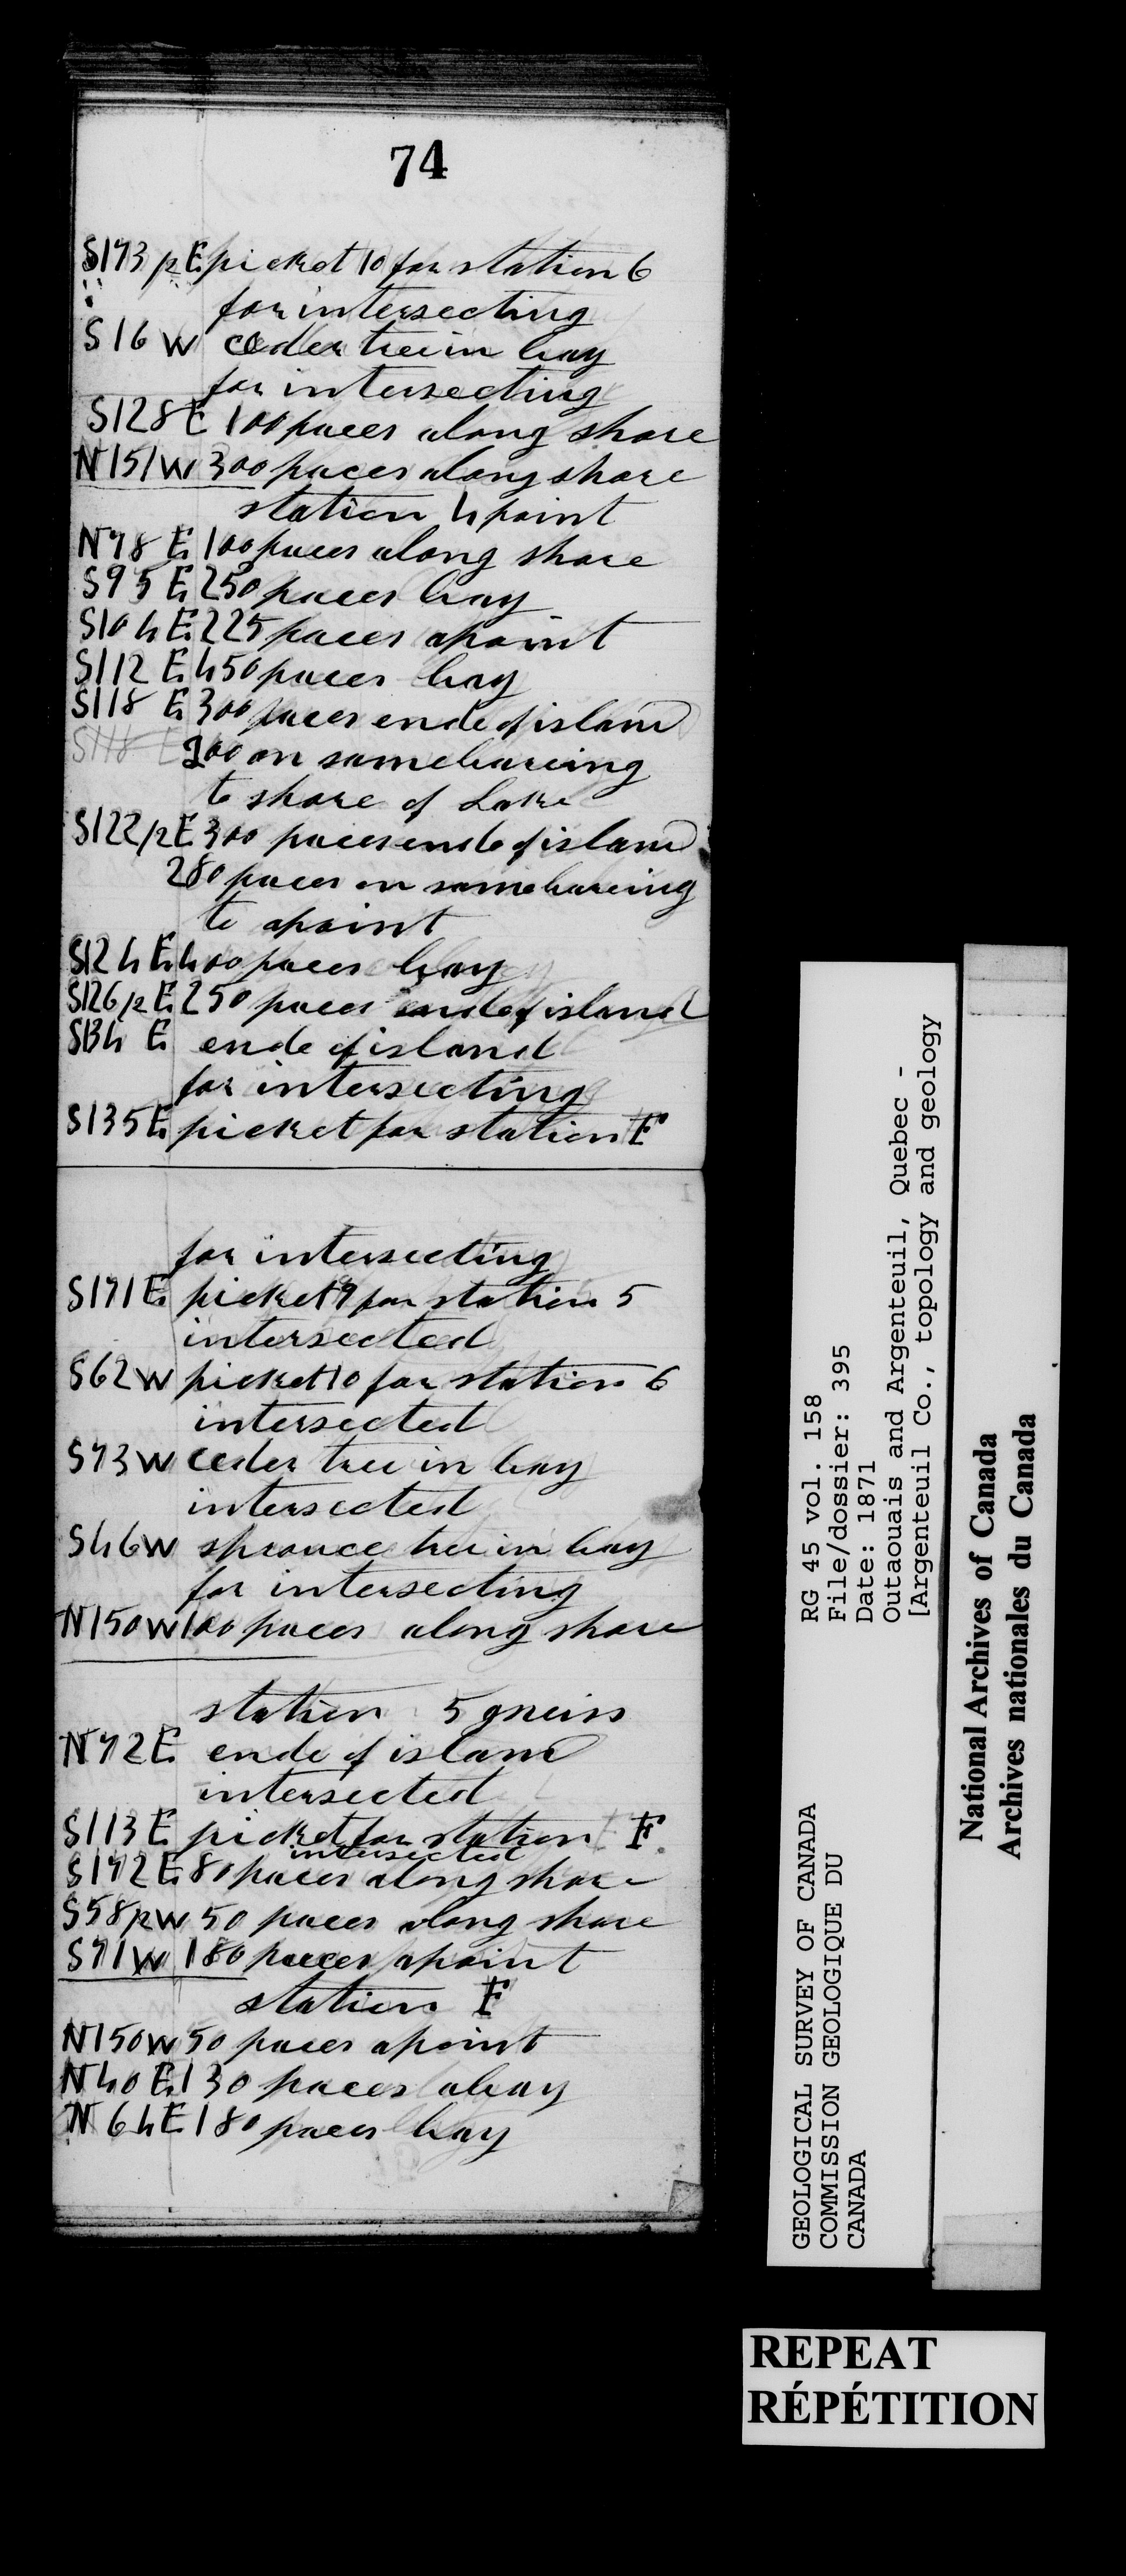 74
S173/2 E picket 10 for station 6
for intersecting
S16 W ceder tree in bay
for intersecting
S128 E 100 paces along shore
N151 W 300 paces along shore
station 4 point
N78 E 100 paces along shore
S95 E 250 paces bay
S104 E 225 paces apoint
S112 E 450 paces bay
S118 E 300 paces ende of island
S118 E 200 on same bareing
to shore of Lake
S122/2 E 300 paces ende of island
280 paces on same bareing
to apoint
S124 E 400 paces bay
S126/2 E 250 paces ende of island
S134 E ende of island
for intersecting
S135 E picket for station F
for intersecting
S171 E picket 9 for station 5
intersected
S62 W picket 10 for station 6
intersected
S73 W ceder tree in bay
intersected
S46 W sprouce tree in bay
for intersecting
N150 W 100 paces along shore
station 5 gneiss
N72 E ende of island
intersected
S113 E picket for station F
intersected
S172 E 80 paces along shore
S58/2 W 50 paces along shore
S71 W 180 paces apoint
station F
N150 W 50 paces apoint
N40 E 130 paces abay
N64 E 180 paces bay
GEOLOGICAL SURVEY OF CANADA
COMMISSION GEOLOGIQUE DU
CANADA
RG 45 vol. 158
File/dossier: 395
Date: 1871
Outaouais and Argenteuil, Quebec -
[Argenteuil Co., topology and geology
National Archives of Canada
Archives nationales du Canada
REPEAT
RÉPÉTITION